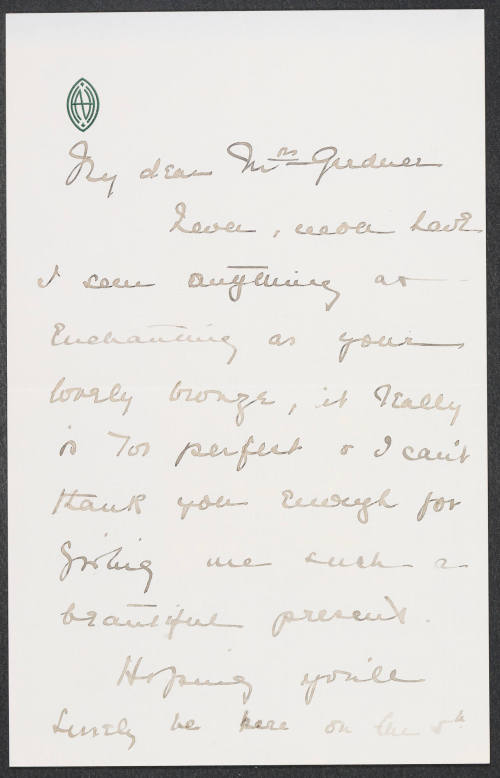 My dear Mrs Gardner
Never, never have
I seen anything as
Enchanting as your
lovely bronze, it really
is Too perfect & I can't
thank you Enough for
giving me such a
beautiful present.
Hoping you'll
surely be here on the 5th